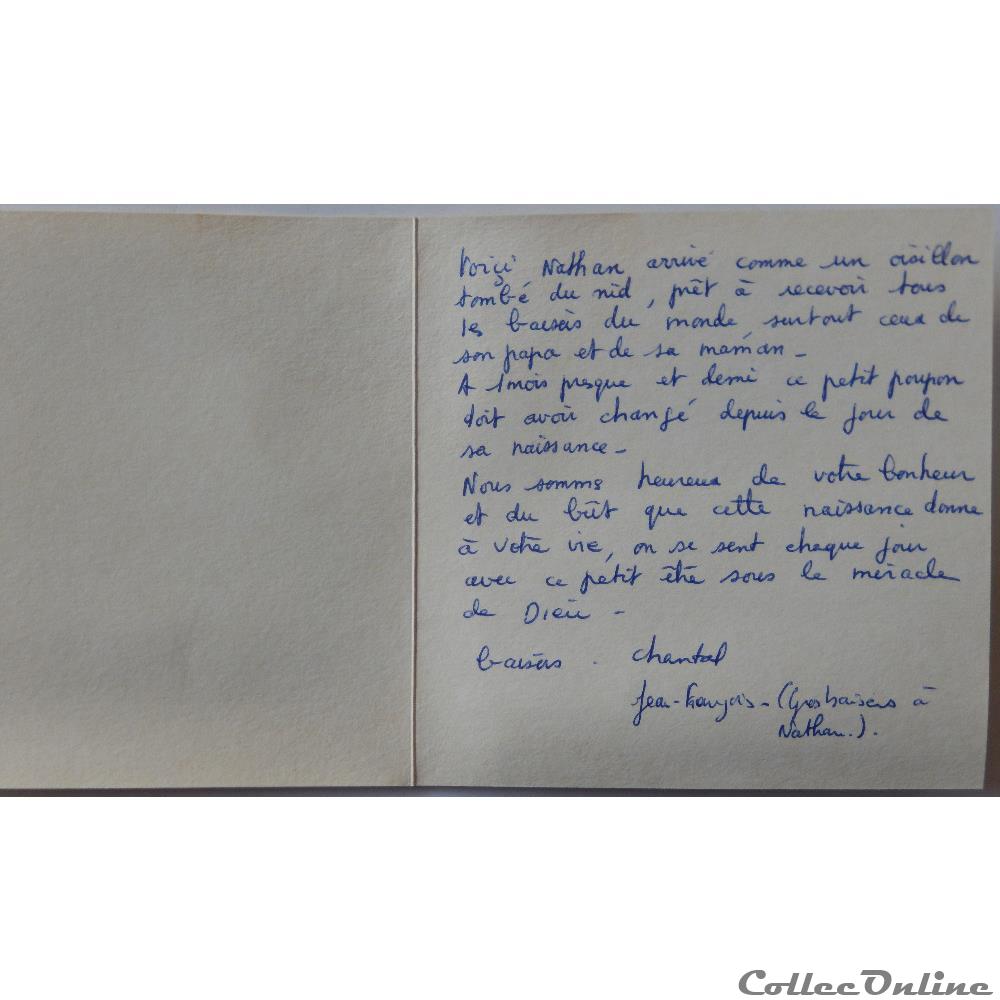 Voiçi Nathan arrivé comme un oisillon
tombé du nid, prêt à recevoir tous
les baisers du monde, surtout ceux de
son papa et de sa maman -
A 1 mois presque et demi ce petit poupon
doit avoir changé depuis le jour de
sa naissance -
Nous somms heureux de votre bonheur
et du bût que cette naissance donne
à votre vie, on se sent chaque jour
avec ce petit être sous le miracle
de Dieu -
baisers . Chantal
Jean-François - (Gros baisers à
Nathan.).
CollecOnline